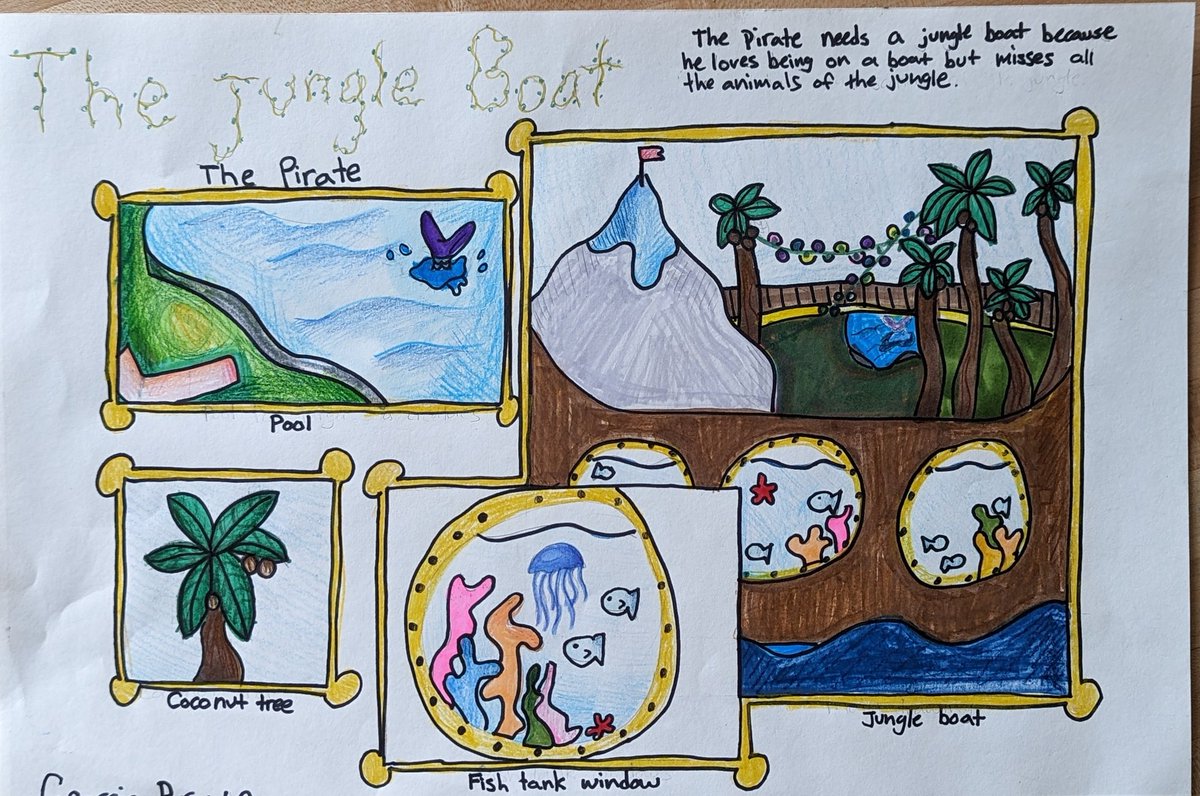 The jungle Boat
The Pirate needs a jungle boat because
he loves being on a boat but misses all
the animals of the jungle.
The Pirate
Pool
Coconut tree
Fish tank window
Jungle boat